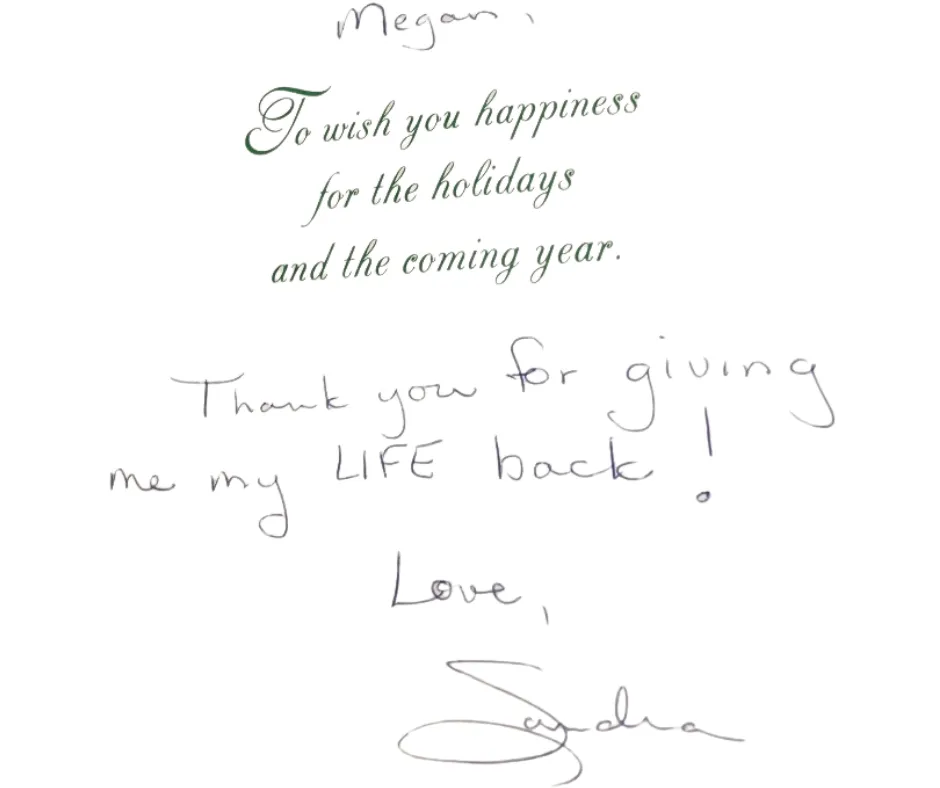 Megan,
To wish you happiness
for the holidays
and the coming year.
Thank you for giving
me my LIFE back!
Love,
Sandra